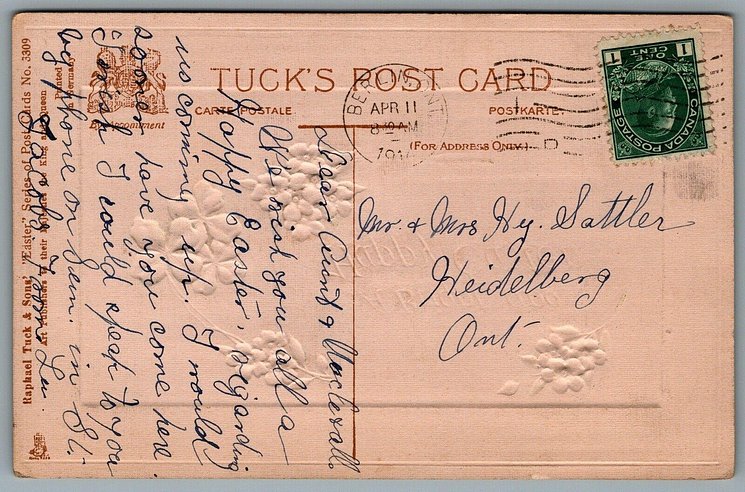 TUCK'S POST CARD
CARTE POSTALE
POSTKARTE
(FOR ADDRESS ONLY)
By Appointment
BERLIN
ONT
APR 11
CANADA POSTAGE
ONE CENT
1 1
Mr. & Mrs Hy. Sattler
Heidelberg
Ont.
Dear Aunt & Uncle & all.
We wish you all a
Happy Easter, regarding
us coming up. I would
sooner have you come here.
I wish I could speak to you
by phone on Sun in St.
Raphael Tuck & Sons' "Easter" Series of Post Cards No. 3309
Art Publishers to their Majesties the King and Queen
Printed in Germany